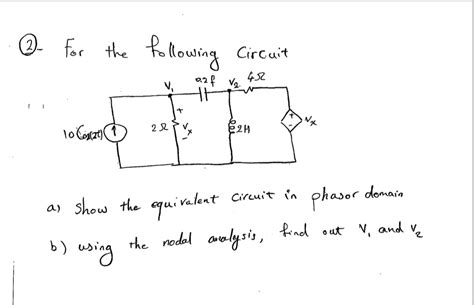 ②- For the following circuit
0.2f 4Ω
V₁ V₂
10 Cos(2t) 2Ω + Vₓ - 2H + - Vₓ
a) show the equivalent circuit in phasor domain
b) using the nodal analysis, find out V₁ and V₂